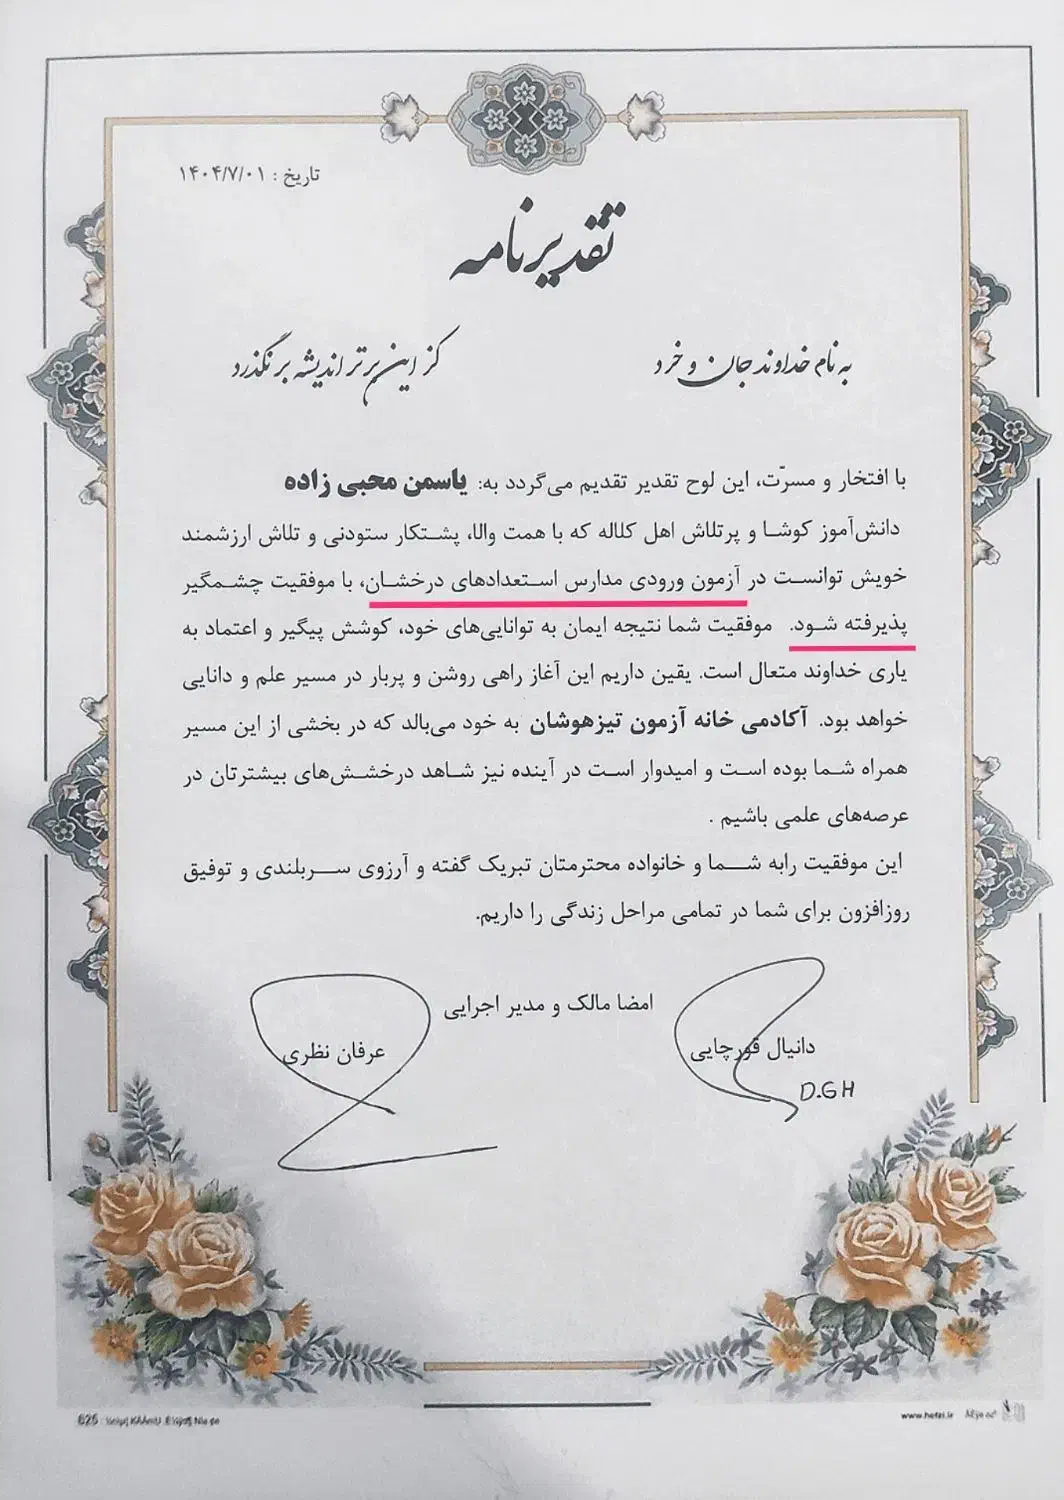 تاریخ : ۱۴۰۴/۷/۰۱
تقدیرنامه
به نام خداوند جان و خرد
کز این برتر اندیشه برنگذرد
با افتخار و مسرّت، این لوح تقدیر تقدیم می‌گردد به: یاسمن محبی زاده
دانش‌آموز کوشا و پرتلاش اهل کلاله که با همت والا، پشتکار ستودنی و تلاش ارزشمند
خویش توانست در آزمون ورودی مدارس استعدادهای درخشان، با موفقیت چشمگیر
پذیرفته شود. موفقیت شما نتیجه ایمان به توانایی‌های خود، کوشش پیگیر و اعتماد به
یاری خداوند متعال است. یقین داریم این آغاز راهی روشن و پربار در مسیر علم و دانایی
خواهد بود. آکادمی خانه آزمون تیزهوشان به خود می‌بالد که در بخشی از این مسیر
همراه شما بوده است و امیدوار است در آینده نیز شاهد درخشش‌های بیشترتان در
عرصه‌های علمی باشیم .
این موفقیت رابه شما و خانواده محترمتان تبریک گفته و آرزوی سربلندی و توفیق
روزافزون برای شما در تمامی مراحل زندگی را داریم.
امضا مالک و مدیر اجرایی
دانیال قورچایی
عرفان نظری
D.GH
www.hefzi.ir
625